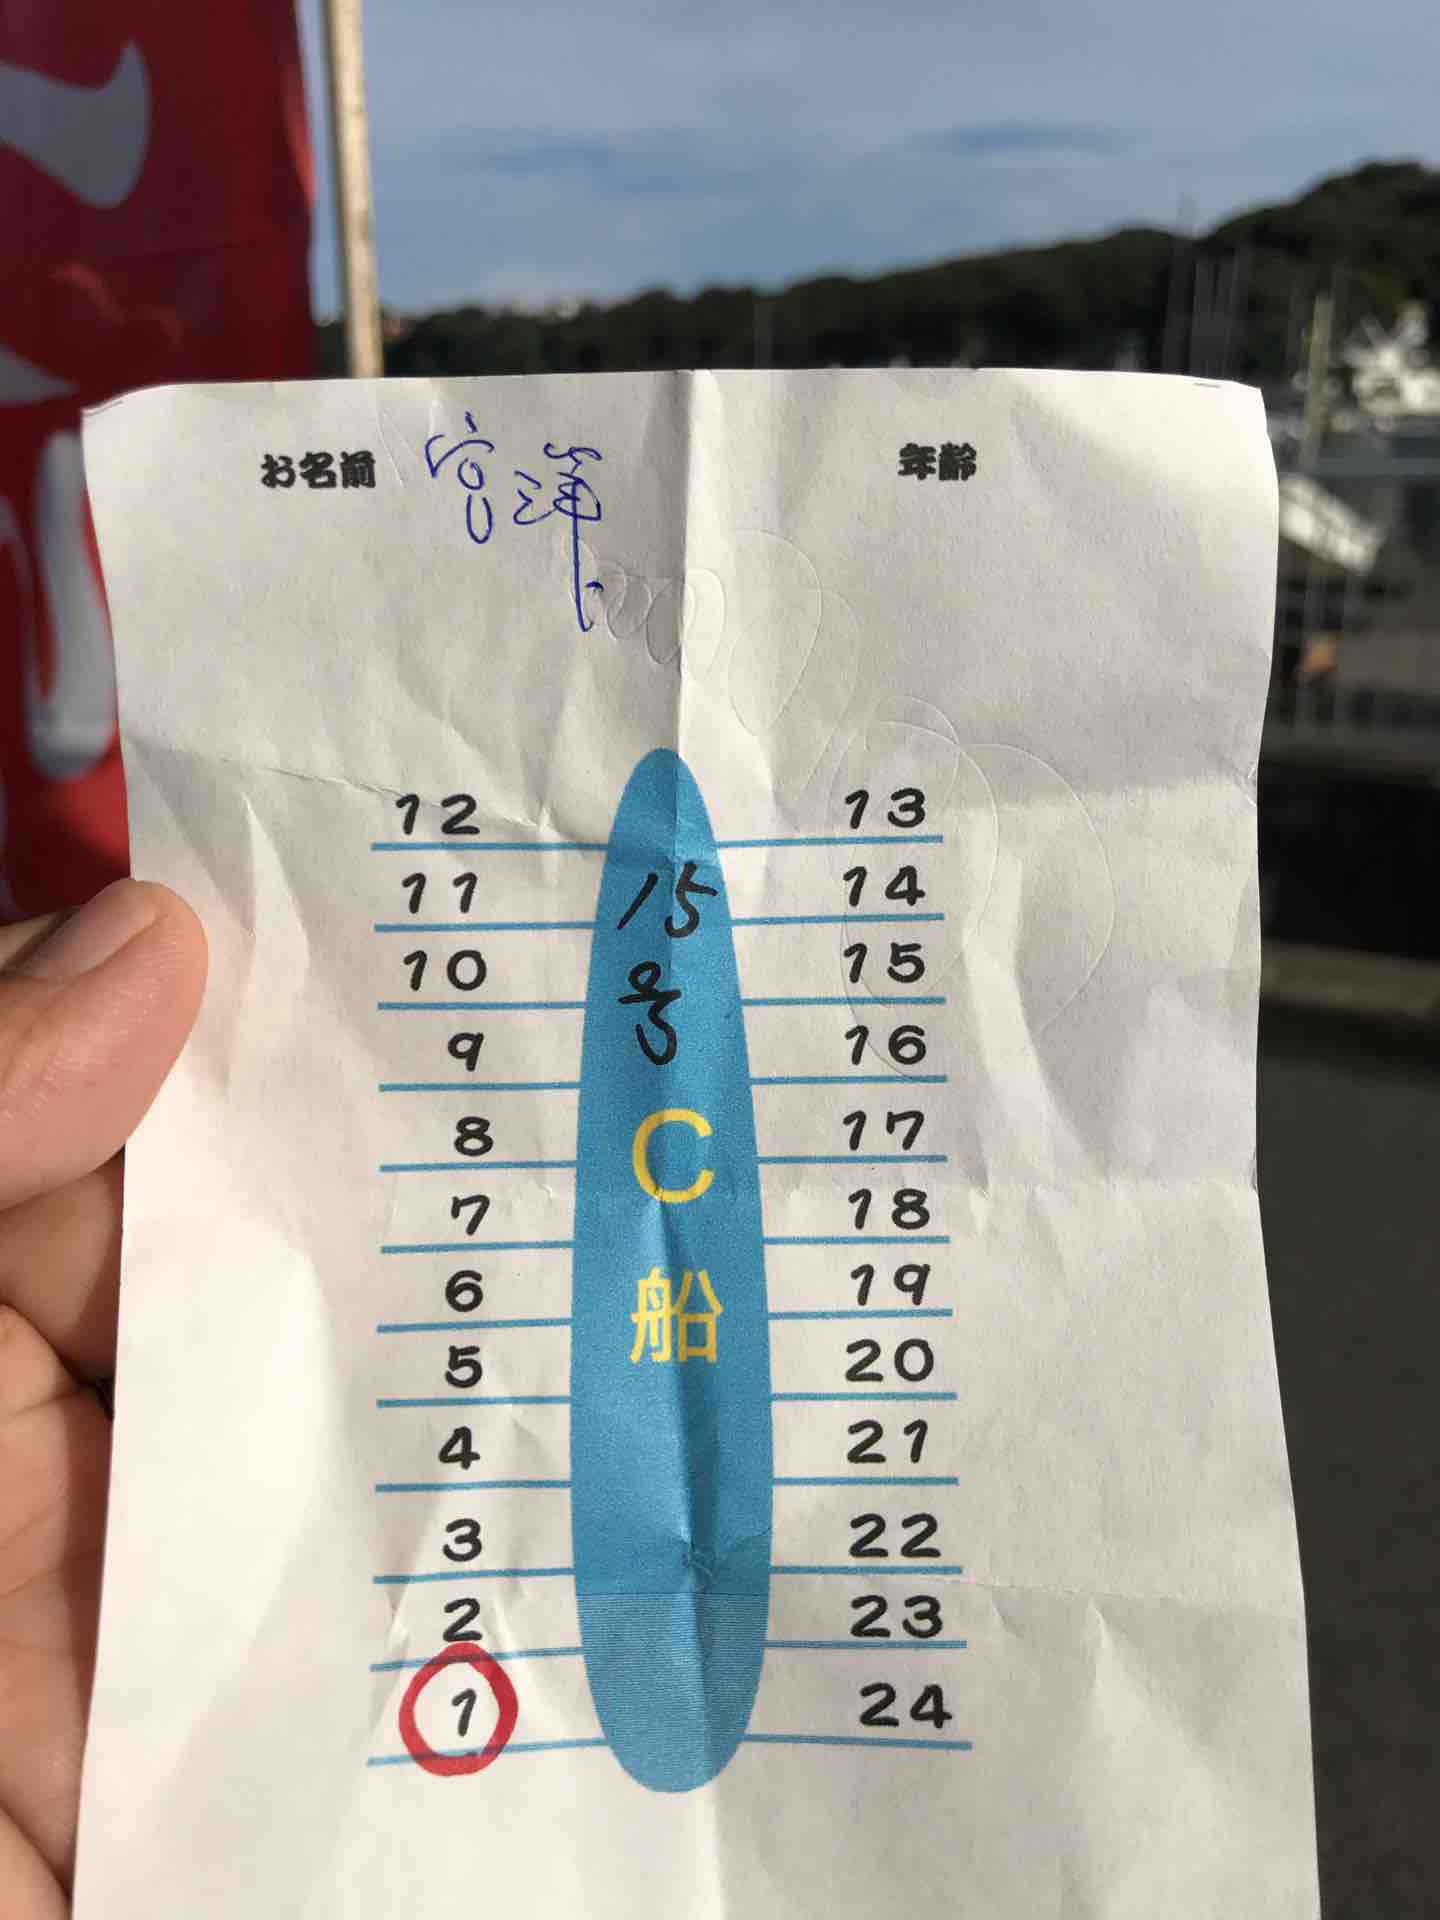 お名前 宮澤
年齢
12 13
11 15 14
10 号 15
9 16
8 C 17
7 18
6 船 19
5 20
4 21
3 22
2 23
1 24